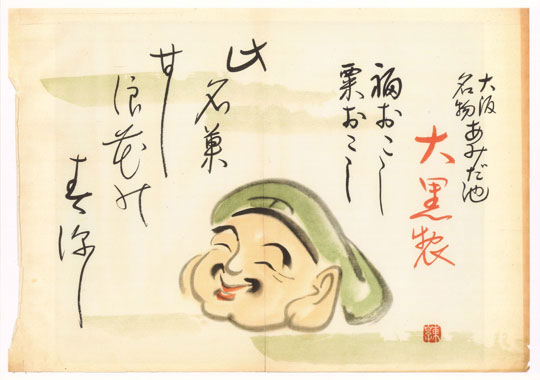 大阪
名物あみだ池
大黒製
福おこし
粟おこし
此名菓
甘し
浪花の
春深し